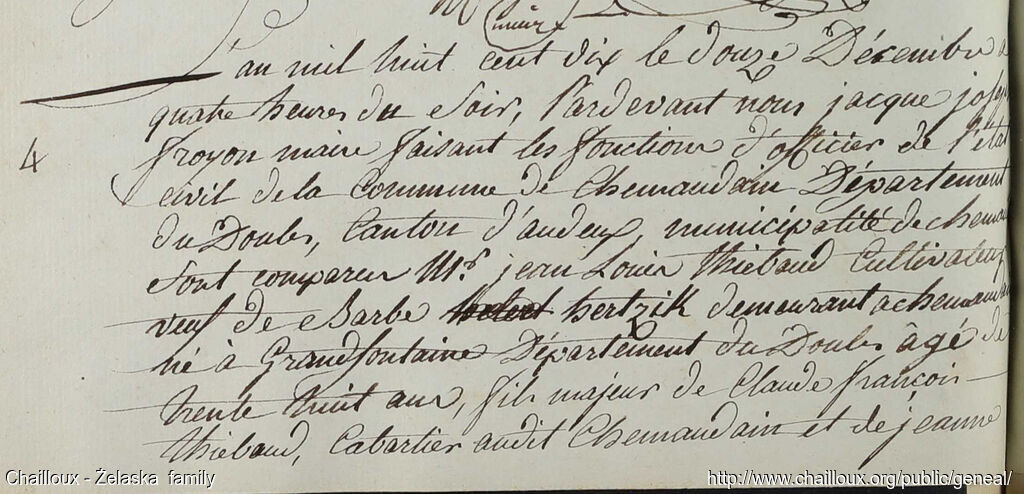 maire
L'an mil huit cent dix le douze Décembre a
quatre heures du Soir, Pardevant nous jacque joseph
froyon maire faisant les fonctions d'officier de l'état
4
civil de la Commune de Chemaudain Département
du Doubs, Canton d'audeux, municipalité de chemau
sont comparu Mr. jean Louis Thiebaud Cultivateur
veuf de Barbe hertzik demeurant a chemaudain
né à Grandfontaine Département du Doubs âgé de
trente huit ans, fils majeur de Claude françois
Thiebaud, Cabartier audit Chemaudain et de jeanne
Chailloux - Żelaska family
http://www.chailloux.org/public/geneal/